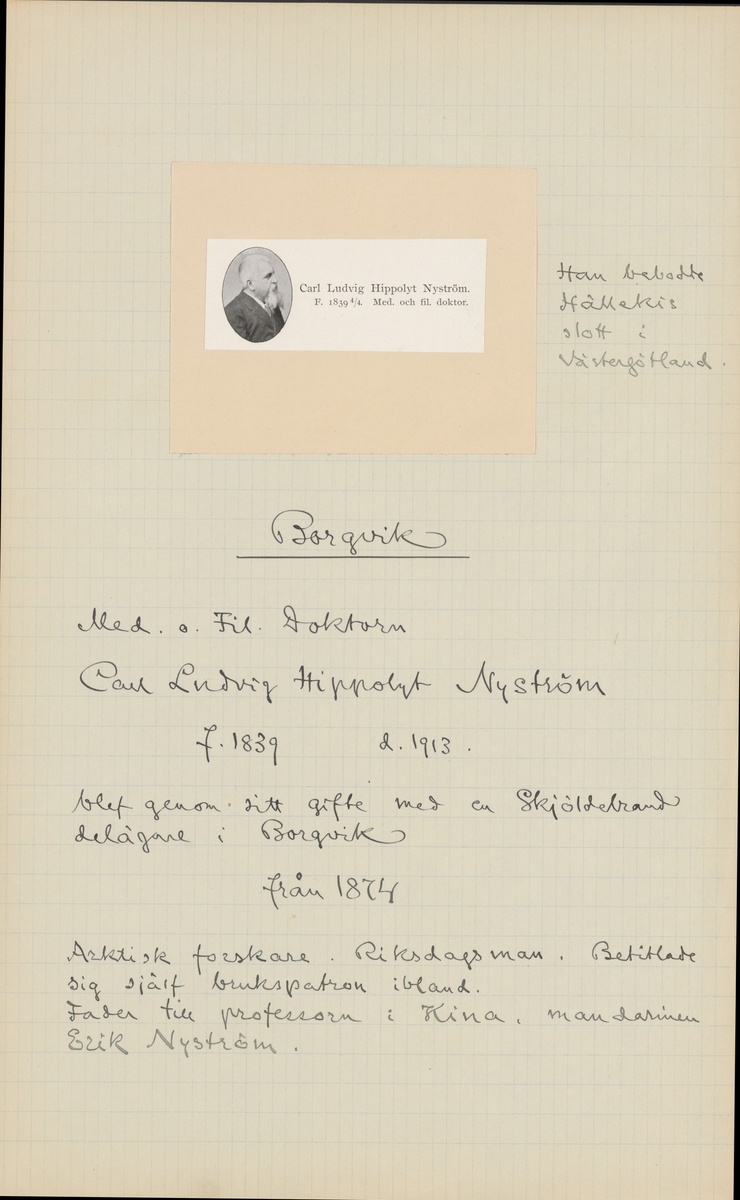 Carl Ludvig Hippolyt Nyström.
F. 1839 4/4. Med. och fil. doktor.
Han bebodde
Hällekis
slott i
Västergötland.
Borgvik
Med. o. Fil. Doktorn
Carl Ludvig Hippolyt Nyström
f. 1839 d. 1913.
blef genom sitt gifte med en Skjöldebrand
delägare i Borgvik
från 1874
Arktisk forskare. Riksdagsman. Betitlade
sig själf brukspatron ibland.
Fader till professorn i Kina, mandarinen
Erik Nyström.